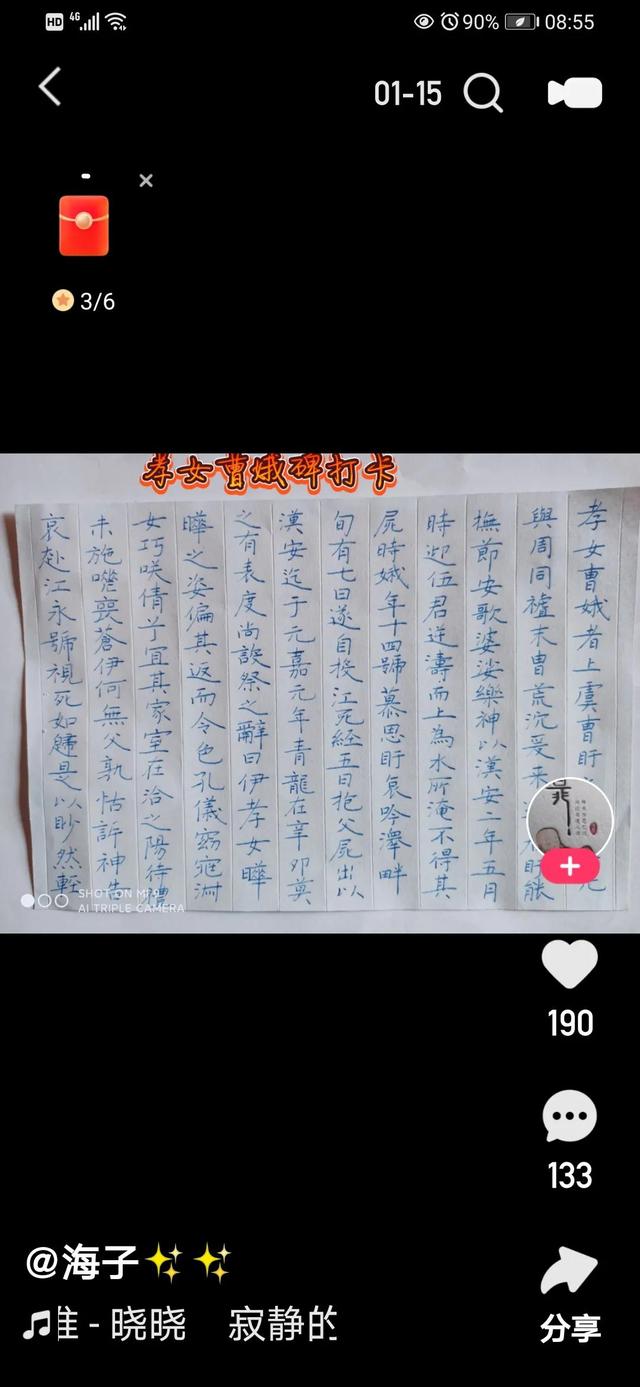 HD 4G 90% 08:55
01-15
3/6
孝女曹娥碑打卡
孝女曹娥者上虞曹盱
與周同墟末曹荒沉爰來盱能
撫節安歌婆娑樂神以漢安二年五月
時迎伍君逆濤而上為水所淹不得其
屍時娥年十四號慕思盱哀吟澤畔
旬有七日遂自投江死經五日抱父屍出以
漢安迄于元嘉元年青龍在辛卯莫
之有表度尚設祭之辭曰伊孝女曄
曄之姿偏其返而令色孔儀窈窕淑
女巧咲倩兮宜其家室在洽之陽待禮
未施嗟喪蒼伊何無父孰怙訴神告
哀赴江永號視死如歸是以眇然輕
SHOT ON MI
AI TRIPLE CAMERA
190
133
@海子
谁 - 晓晓 寂静的
分享